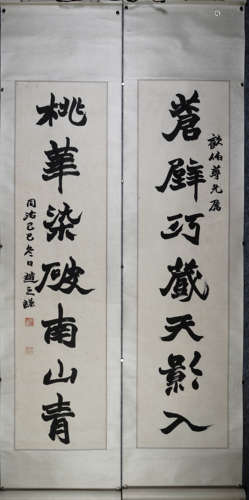 蒼壁巧藏天影入
桃華染破南山青
同治己巳冬日趙之謙